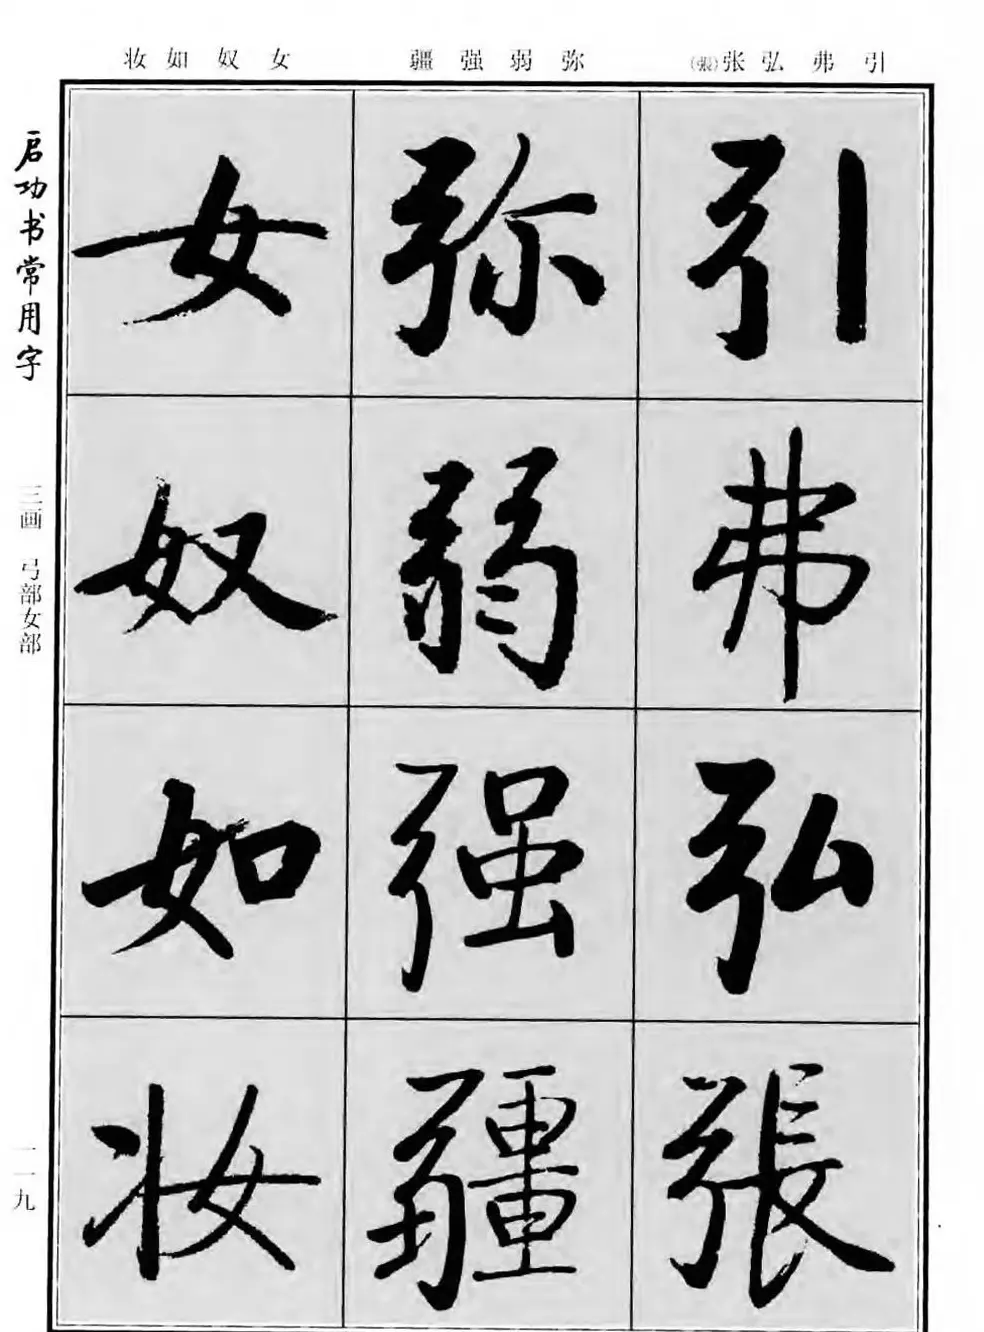 引 弗 弘 张（張）
弥 弱 强 疆
女 奴 如 妆
引
弗
弘
張
弥
弱
强
疆
女
奴
如
妆
启功书常用字
三画 弓部女部
一一九